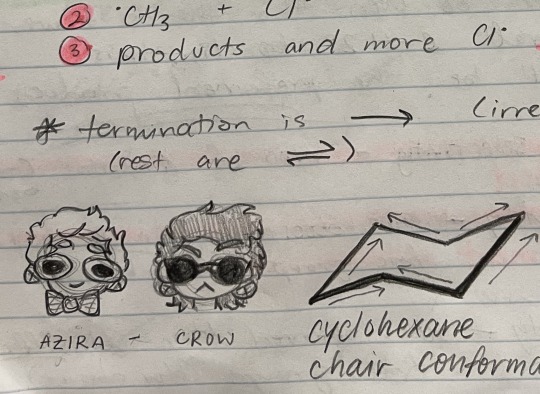 ② ·CH3 + Cl·
③ products and more Cl·
* termination is ⟶ (irre
(rest are ⇌)
AZIRA - CROW
cyclohexane
chair conforma